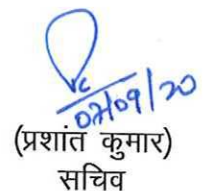 07/09/20
(प्रशांत कुमार)
सचिव